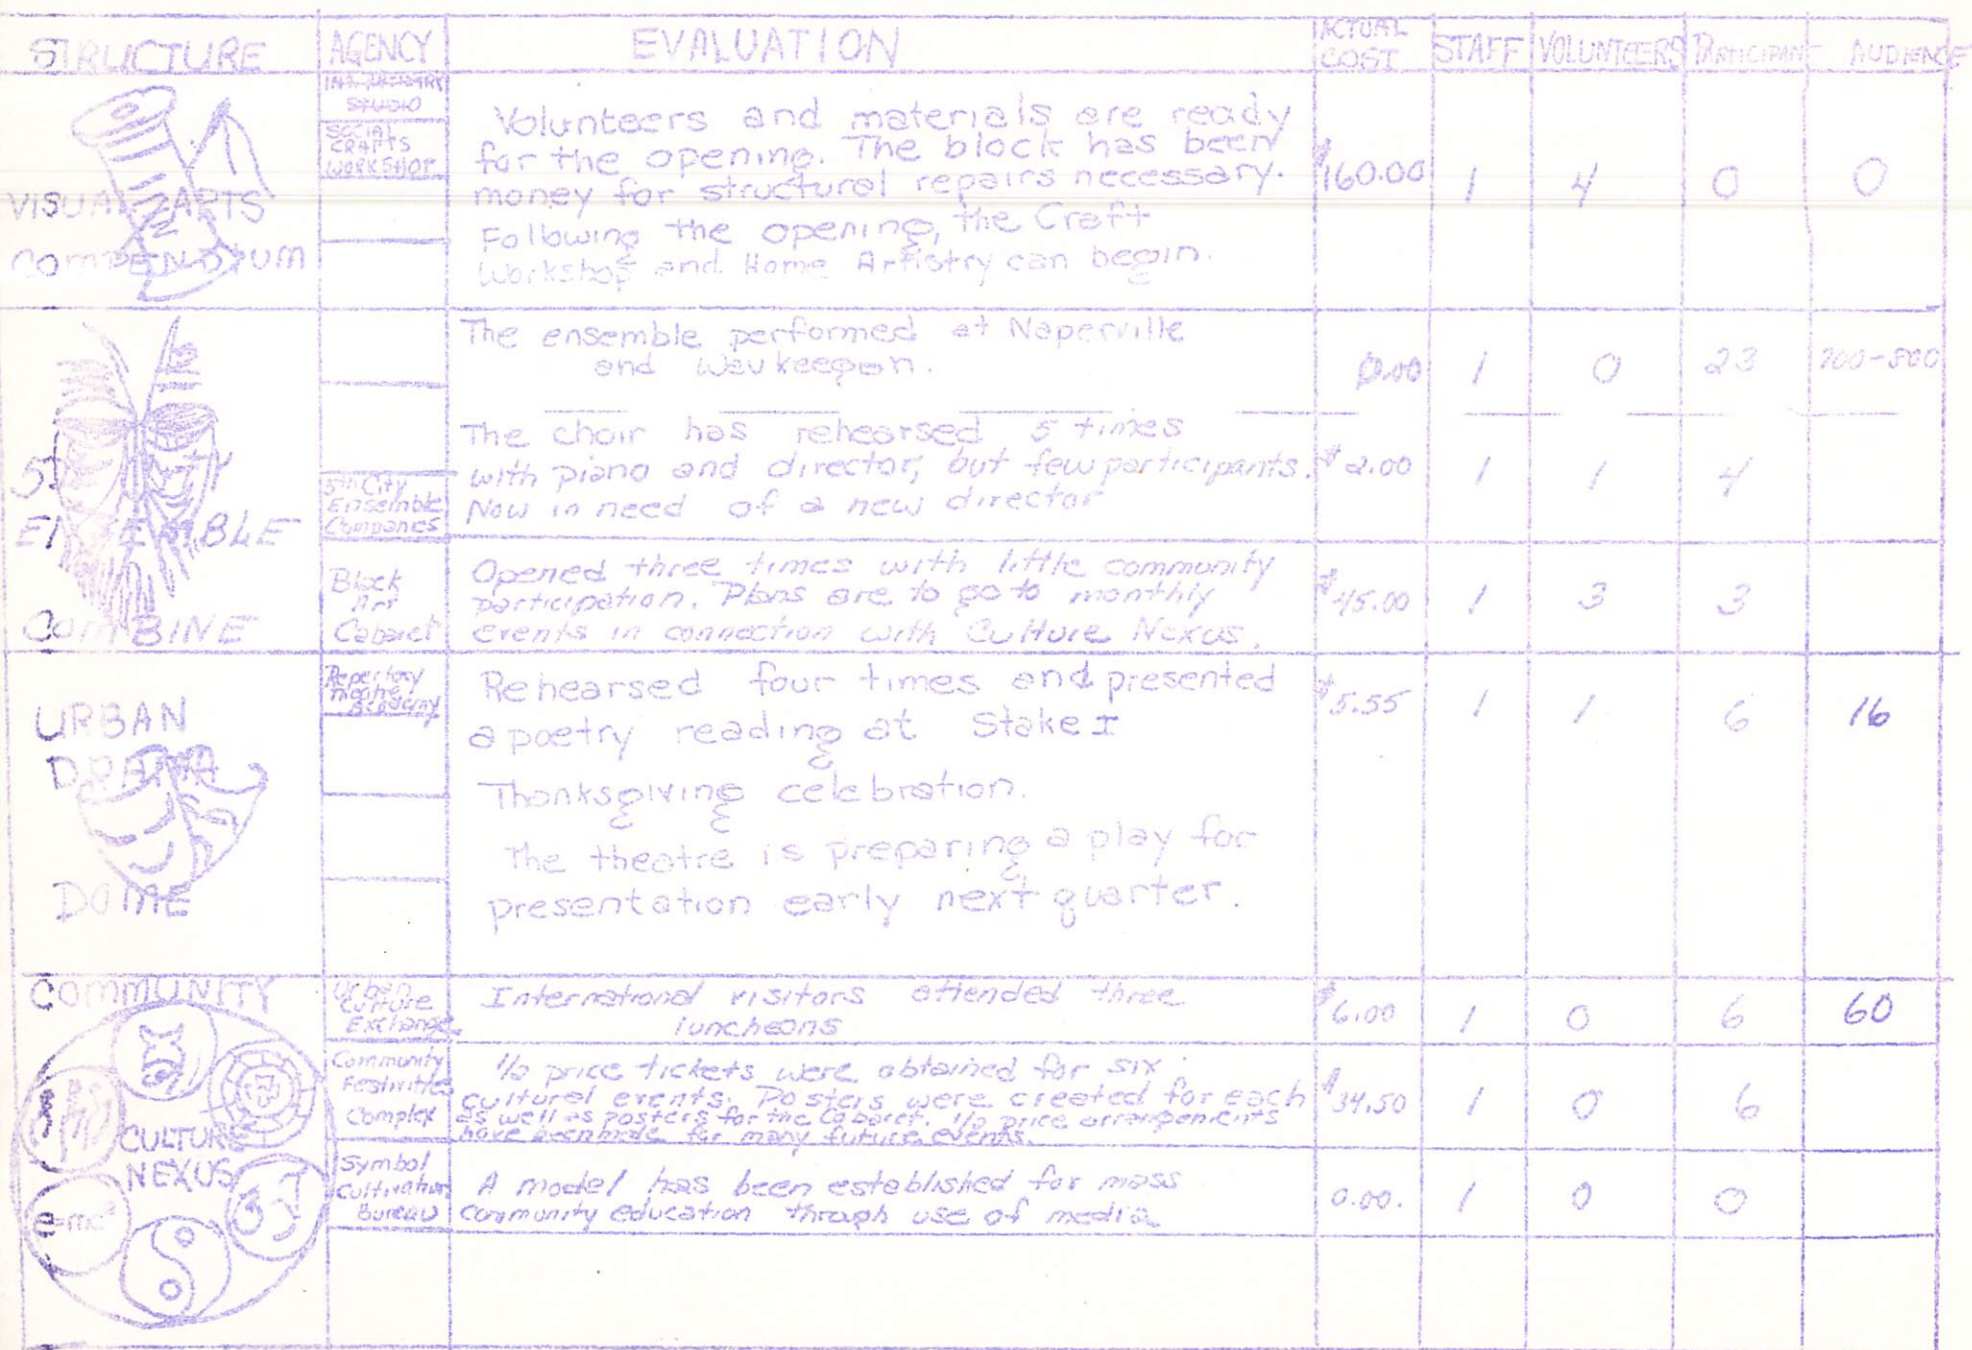 STRUCTURE AGENCY EVALUATION ACTUAL COST STAFF VOLUNTEERS PARTICIPANT AUDIENCE
VISUAL ARTS
COMPENDIUM
STUDIO
SOCIAL
CRAFTS
WORKSHOP
Volunteers and materials are ready
for the opening. The block has been
money for structural repairs necessary.
Following the opening, the Craft
Workshop and Home Artistry can begin.
$160.00 1 4 0 0
ENSEMBLE
COMBINE
The ensemble performed at Naperville
and Waukeegon.
0.00 1 0 23 700-800
5th City
Ensemble
Companies
The choir has rehearsed 5 times
with piano and director, but few participants.
Now in need of a new director
$2.00 1 1 4
Block
Art
Cabaret
Opened three times with little community
participation. Plans are to go to monthly
events in connection with Culture Nexus.
$45.00 1 3 3
URBAN
DRAMA
DOME
Repertory
Theatre
Academy
Rehearsed four times and presented
a poetry reading at Stake I
Thanksgiving celebration.
The theatre is preparing a play for
presentation early next quarter.
$5.55 1 1 6 16
COMMUNITY
CULTURE
NEXUS
Urban
Culture
Exchange
International visitors attended three
luncheons
$6.00 1 0 6 60
Community
Festivities
Complex
1/2 price tickets were obtained for six
cultural events. Posters were created for each
as well as posters for the Cabaret. 1/2 price arrangements
have been made for many future events.
$34.50 1 0 6
Symbol
Cultivation
Bureau
A model has been established for mass
community education through use of media
0.00. 1 0 0